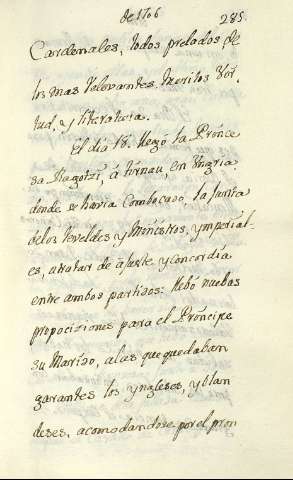 de 1706
285.
Cardenales, todos prelados de
los mas Relevantes. meritos Vir,
tud, y literatura.
El dia 18. llegó la Prince
sa Ragotzi, á tirnau, en Vngria
donde se havia Combocado, la Junta
delos Reveldes, y Menistros, ymperial-
es, atratar de ajuste, y concordia
entre ambos partidos: llebó nuebas
propociziones para el Principe
su Marido, alas que quedaban
garantes los yngleses, y olan
deses, acomodandose por el pron